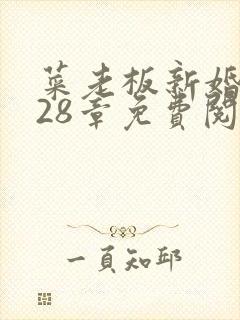 菜老板新婚
28章免費閱
一頁知邱